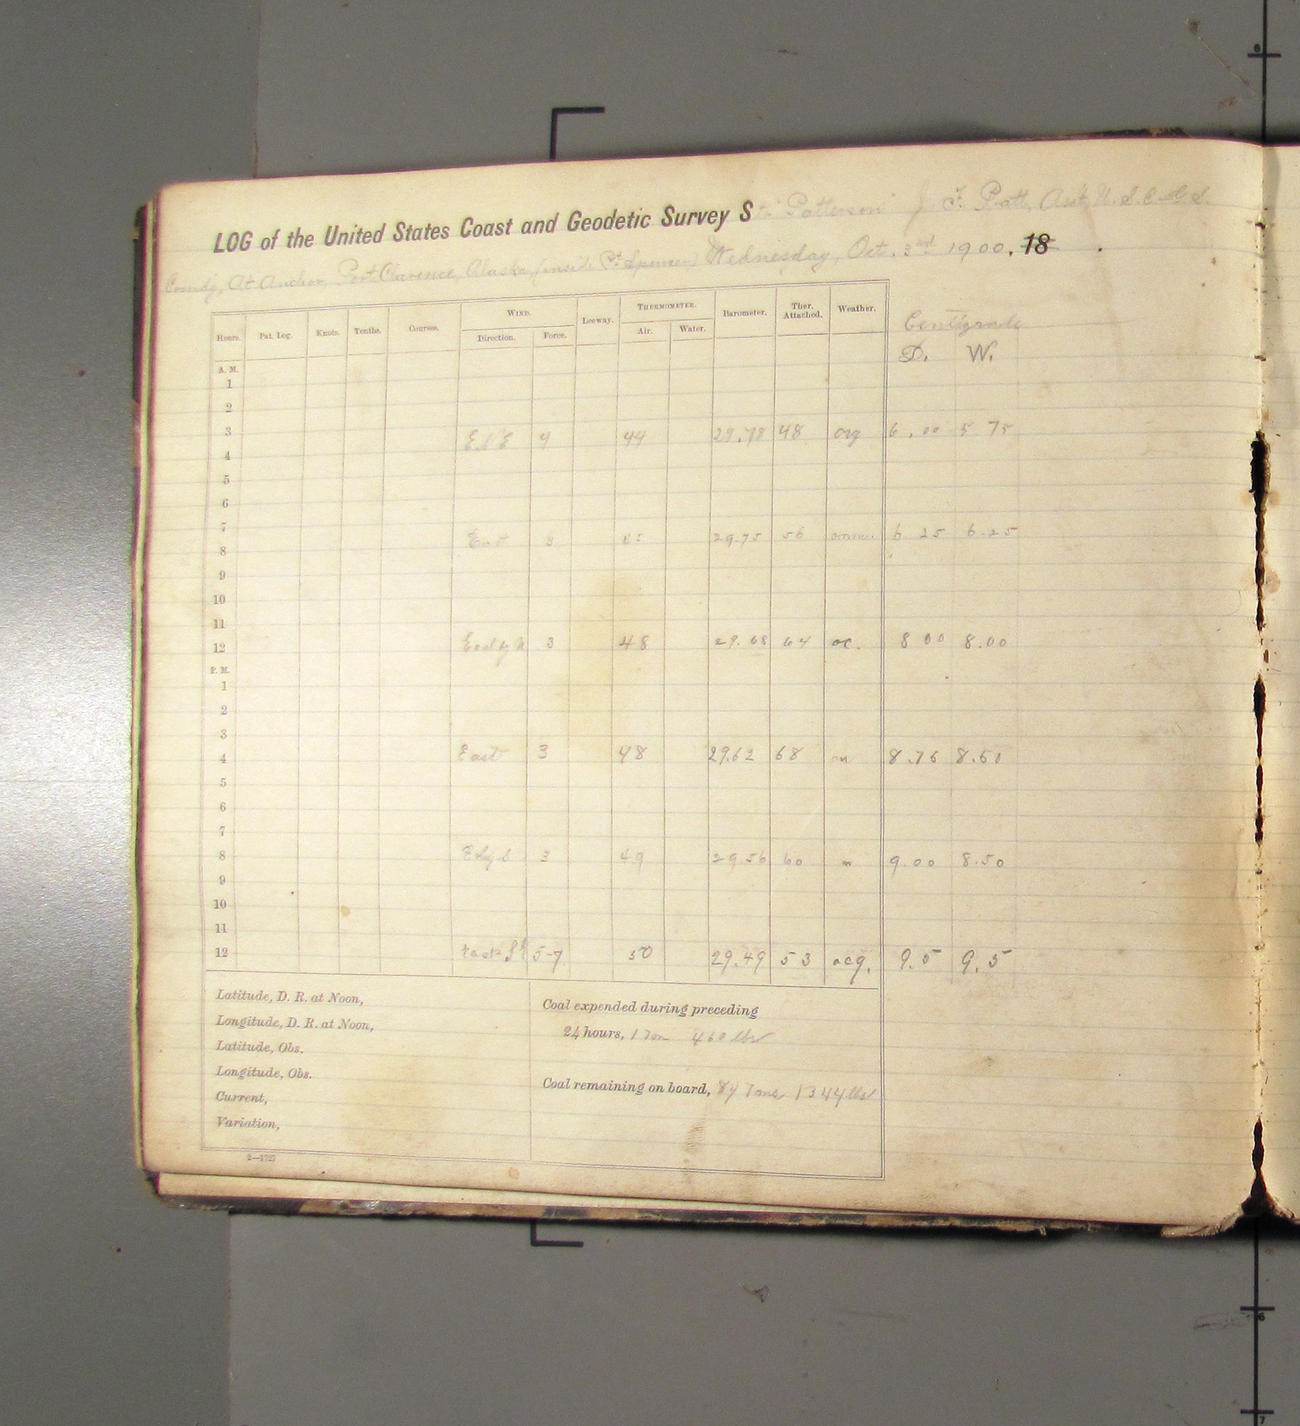 LOG of the United States Coast and Geodetic Survey S Patterson J. F. Pratt, Asst, U. S. C. & G. S.
Comdg, At Anchor, Port Clarence, Alaska, (inside Pt Spencer) Wednesday, Oct. 3rd 1900, 18
Hours. Pat. Log. Knots. Tenths. Courses. WIND. Leeway. THERMOMETER. Barometer. Ther. Attached. Weather. Centigrade
Direction. Force. Air. Water. D. W.
A. M.
1
2
3
4 4 44 29.78 48 6.00 5 75
5
6
7
8 East 3 29.75 56 6 25 6.25
9
10
11
12 East by N 3 48 29.68 64 oc. 8 00 8.00
P. M.
1
2
3
4 East 3 48 29.62 68 8.75 8.50
5
6
7
8 3 49 29.56 60 9.00 8.50
9
10
11
12 5-7 50 29.49 53 ocq. 9.5 9.5
Latitude, D. R. at Noon,
Longitude, D. R. at Noon,
Latitude, Obs.
Longitude, Obs.
Current,
Variation,
Coal expended during preceding
24 hours, 1 Ton 460 lbs
Coal remaining on board, 84 Tons 1344 lbs
2—1727
6
6
7